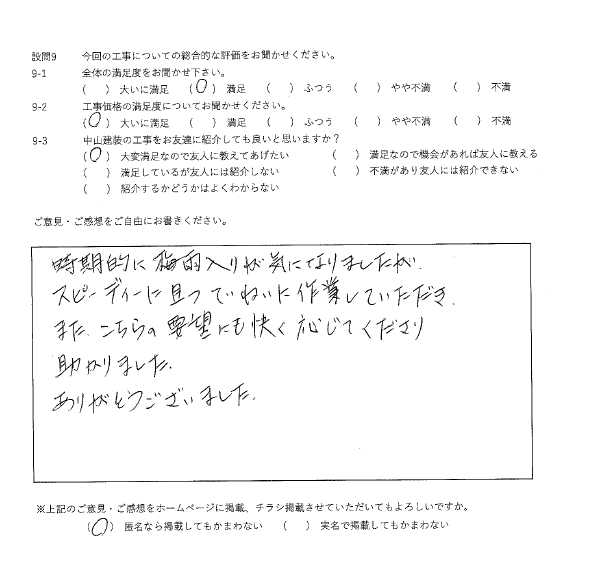 設問9 今回の工事についての総合的な評価をお聞かせください。
9-1 全体の満足度をお聞かせ下さい。
( ) 大いに満足 (○) 満足 ( ) ふつう ( ) やや不満 ( ) 不満
9-2 工事価格の満足度についてお聞かせください。
(○) 大いに満足 ( ) 満足 ( ) ふつう ( ) やや不満 ( ) 不満
9-3 中山建装の工事をお友達に紹介しても良いと思いますか?
(○) 大変満足なので友人に教えてあげたい ( ) 満足なので機会があれば友人に教える
( ) 満足しているが友人には紹介しない ( ) 不満があり友人には紹介できない
( ) 紹介するかどうかはよくわからない
ご意見・ご感想をご自由にお書きください。
時期的に梅雨入りが気になりましたが、
スピーディーに且つていねいに作業していただき、
また、こちらの要望にも快く応じてくださり
助かりました。
ありがとうございました。
※上記のご意見・ご感想をホームページに掲載、チラシ掲載させていただいてもよろしいですか。
(○) 匿名なら掲載してもかまわない ( ) 実名で掲載してもかまわない